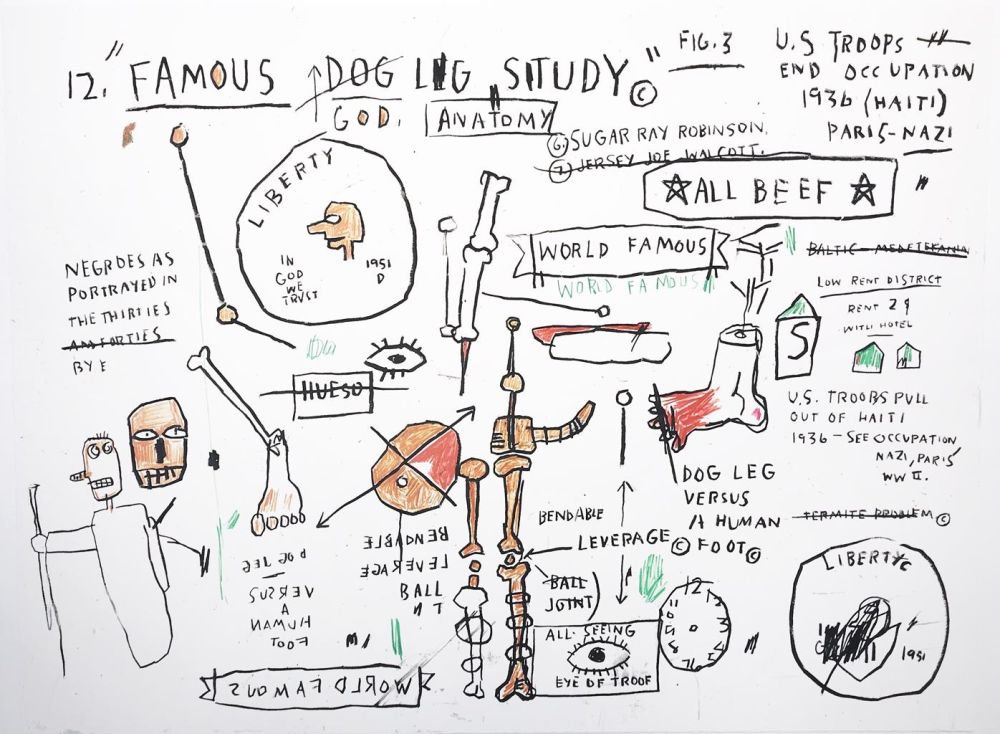 12. "FAMOUS DOG LEG SITUDY" ©
FIG. 3
GOD.
ANATOMY
U.S TROOPS
END OCCUPATION
1936 (HAITI)
PARIS-NAZI
6. SUGAR RAY ROBINSON.
7. JERSEY JOE WALCOTT.
ALL BEEF
LIBERTY
IN
GOD
WE
TRVST
1951
D
WORLD FAMOUS
WORLD FAMOUS
BALTIC-MEDETERANIA
LOW RENT DISTRICT
RENT 29
WITH HOTEL
S
NEGROES AS
PORTRAYED IN
THE THIRTIES
AND FORTIES
BY E
HUESO
U.S. TROOBS PULL
OUT OF HAITI
1936 - SEE OCCUPATION
NAZI, PARIS
WW II.
DOG LEG
VERSUS
A HUMAN
FOOT ©
TERMITE PROBLEM ©
BENDABLE
LEVERAGE ©
BALL
JOINT)
BENDABLE
LEVERAGE
BALL
DOG LEG
VERSUS
A
HUMAN
FOOT
ALL-SEEING
EYE OF TROOF
12
WORLD FAMOUS
LIBERTY
1951